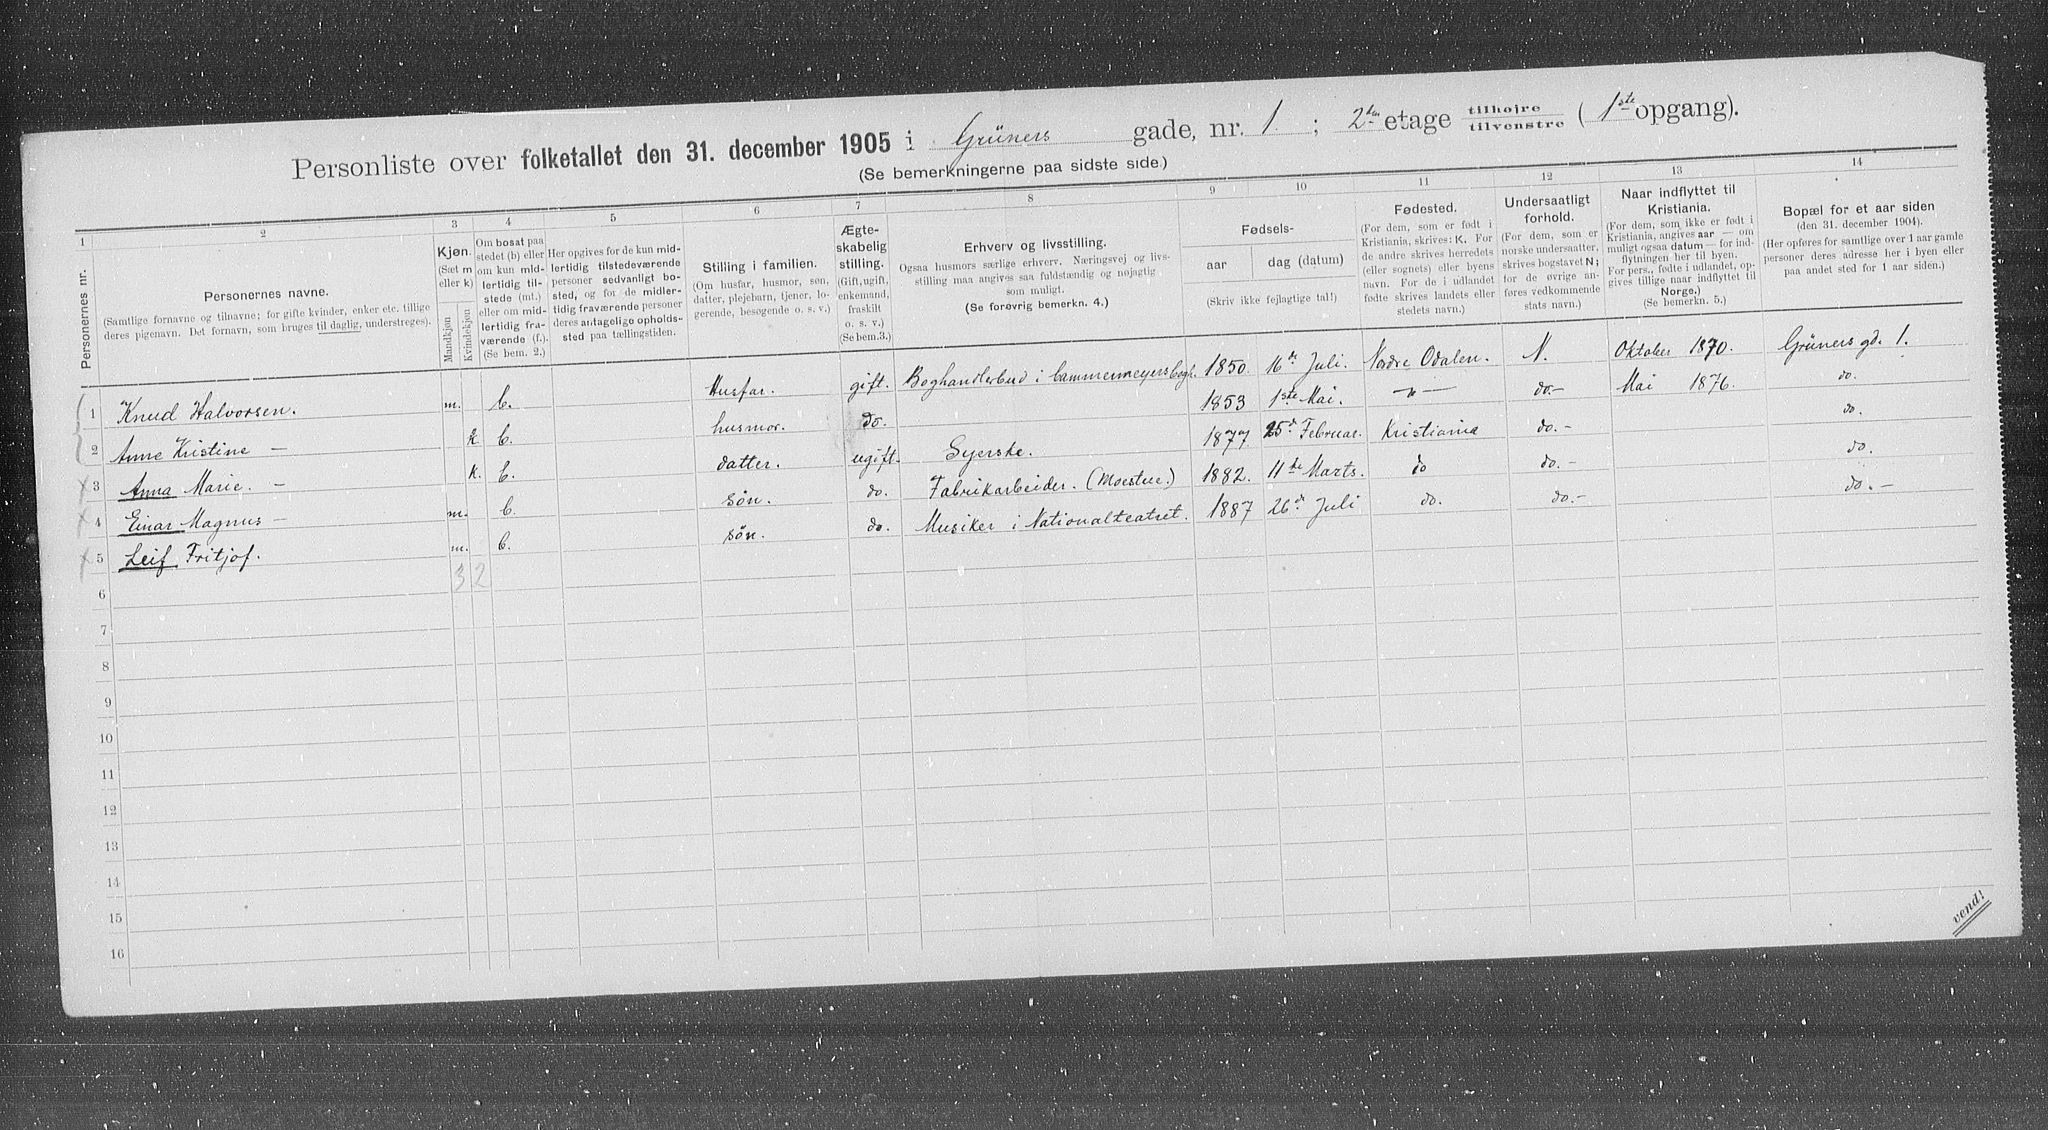 Personliste over folketallet den 31. december 1905 i Grüners gade, nr. 1. ; 2den etage tilhøjre tilvenstre ( 1ste opgang).
(Se bemerkningerne paa sidste side.)
1 2 3 4 5 6 7 8 9 10 11 12 13 14
Personernes nr.
Personernes navne.
(Samtlige fornavne og tilnavne; for gifte kvinder, enker etc. tillige
deres pigenavn. Det fornavn, som bruges til daglig, understreges).
Kjøn.
(Sæt m
eller k)
Mandkjøn
Kvindekjøn
Om bosat paa
stedet (b) eller
om kun mid-
lertidig til-
stede (mt.)
eller om mid-
lertidig fra-
værende (f.).
(Se bem. 2.)
Her opgives for de kun mid-
lertidig tilstedeværende
personer sedvanligt bo-
sted, og for de midler-
tidig fraværende personer
deres antagelige opholds-
sted paa tællingstiden.
Stilling i familien.
(Om husfar, husmor, søn,
datter, plejebarn, tjener, lo-
gerende, besøgende o. s. v.)
Ægte-
skabelig
stilling.
(Gift, ugift,
enkemand,
fraskilt
o. s. v.)
(Se bem.3.)
Erhverv og livsstilling.
Ogsaa husmors særlige erhverv. Næringsvej og livs-
stilling maa angives saa fuldstændig og nøjagtig
som muligt.
(Se forøvrig bemerkn. 4.)
Fødsels-
aar
dag (datum)
(Skriv ikke fejlagtige tal!)
Fødested.
(For dem, som er født i
Kristiania, skrives: K. For
de andre skrives herredets
(eller sognets) eller byens
navn. For de i udlandet
fødte skrives landets eller
stedets navn.)
Undersaatligt
forhold.
(For dem, som er
norske undersaatter,
skrives bogstavet N;
for de øvrige an-
føres vedkommende
stats navn.)
Naar indflyttet til
Kristiania.
(For dem, som ikke er født i
Kristiania, angives aar — om
muligt ogsaa datum — for ind-
flytningen her til byen.
For pers., fødte i udlandet, op-
gives tillige naar indflyttet til
Norge.)
(Se bemerkn. 5.)
Bopæl for et aar siden
(den 31. december 1904).
(Her opføres for samtlige over 1 aar gamle
personer deres adresse her i byen eller
paa andet sted for 1 aar siden.)
1 Knud Halvorsen. m. b. Husfar. gift. Boghandlerbud i Cammermeyers bogh. 1850. 16de Juli. Nordre Odalen. N. Oktober 1870. Grüners gd. 1.
2 Anne Kristine — k b. husmor. do. 1853 1ste Mai. —"— do.- Mai 1876. do.
3 Anna Marie. — k. b. datter. ugift. Syerske. 1877 25d Februar. Kristiania do.- do.
4 Einar Magnus — m. b. søn. do. Fabrikarbeider. (Moestue.) 1882. 11te Marts. do do.- do.
5 Leif Fritjof. m. b. søn. do. Musiker i Nationalteatret. 1887 26d Juli do. do.- do.-
6 3 2
7
8
9
10
11
12
13
14
15
16
vend!